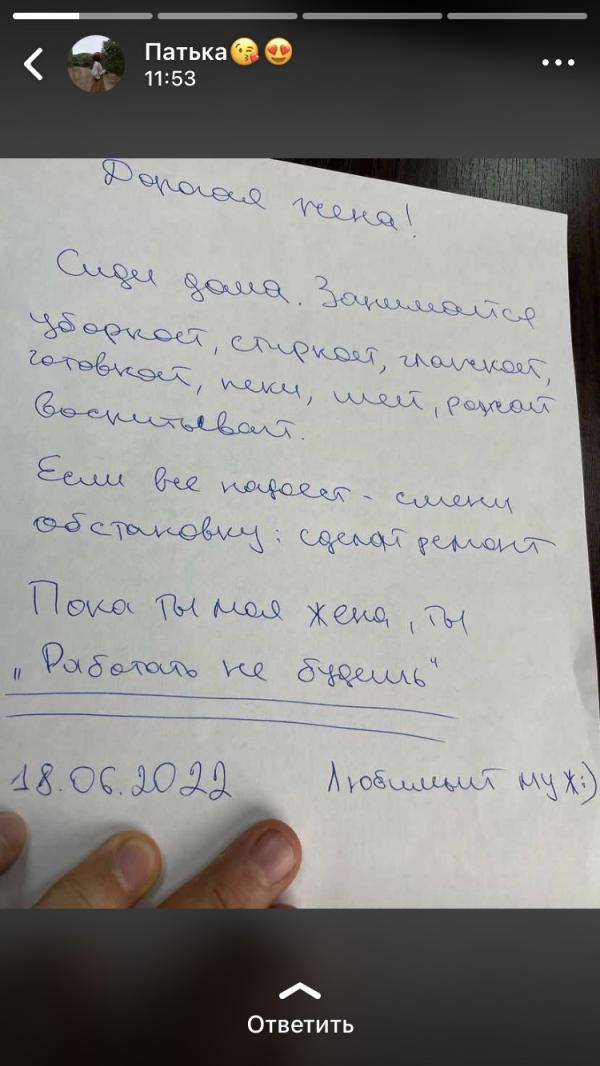 Патька😘😍
11:53
Дорогая жена!
Сиди дома. Занимайся
уборкой, стиркой, глажкой,
готовкой, пеки, шей, рожай
воспитывай.
Если все надоест - смени
обстановку: сделай ремонт
Пока ты моя жена, ты
„Работать не будешь"
18.06.2022 Любимый муж:)
Ответить